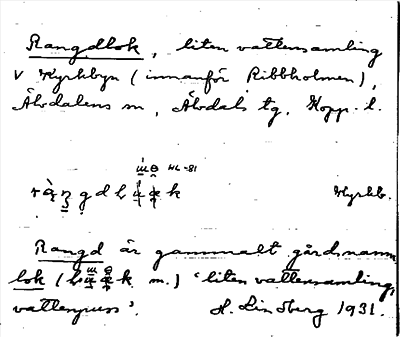 Rangdlok, liten vattensamling
V Kyrkbyn (innanför Ribbholmen),
Älvdalens sn, Älvdals tg, Kopp. l.
HL-81
Kyrkb.
Rangd är gammalt gårdsnamn
lok ( m.) 'liten vattensamling,
vattenpuss'. H. Lindberg 1931.